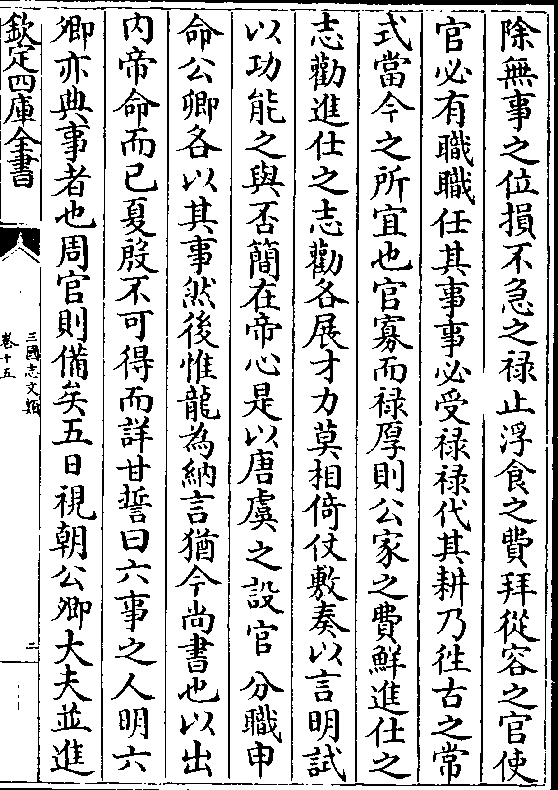 除無事之位損不急之禄止浮食之費拜從容之官使
官必有職職任其事事必受禄禄代其耕乃徃古之常
式當今之所宜也官寡而禄厚則公家之費鮮進仕之
志勸進仕之志勸各展才力莫相倚仗敷奏以言明試
以功能之與否簡在帝心是以唐虞之設官分職申
命公卿各以其事然後惟龍為納言猶今尚書也以出
内帝命而已夏殷不可得而詳甘誓曰六事之人明六
卿亦典事者也周官則備矣五日視朝公卿大夫並進
欽定四庫全書
三國志文類
卷十五
二